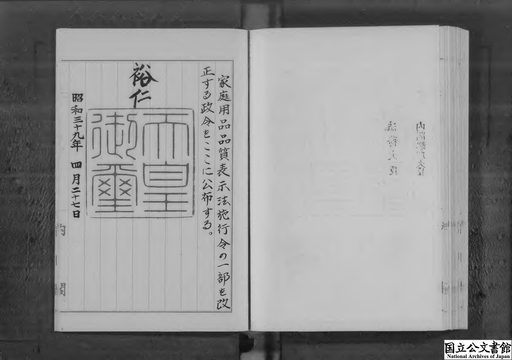 家庭用品品質表示法施行令の一部を改
正する政令をここに公布する。
裕仁
天皇
御璽
昭和三十九年 四月二十七日
内閣
国立公文書館
National Archives of Japan